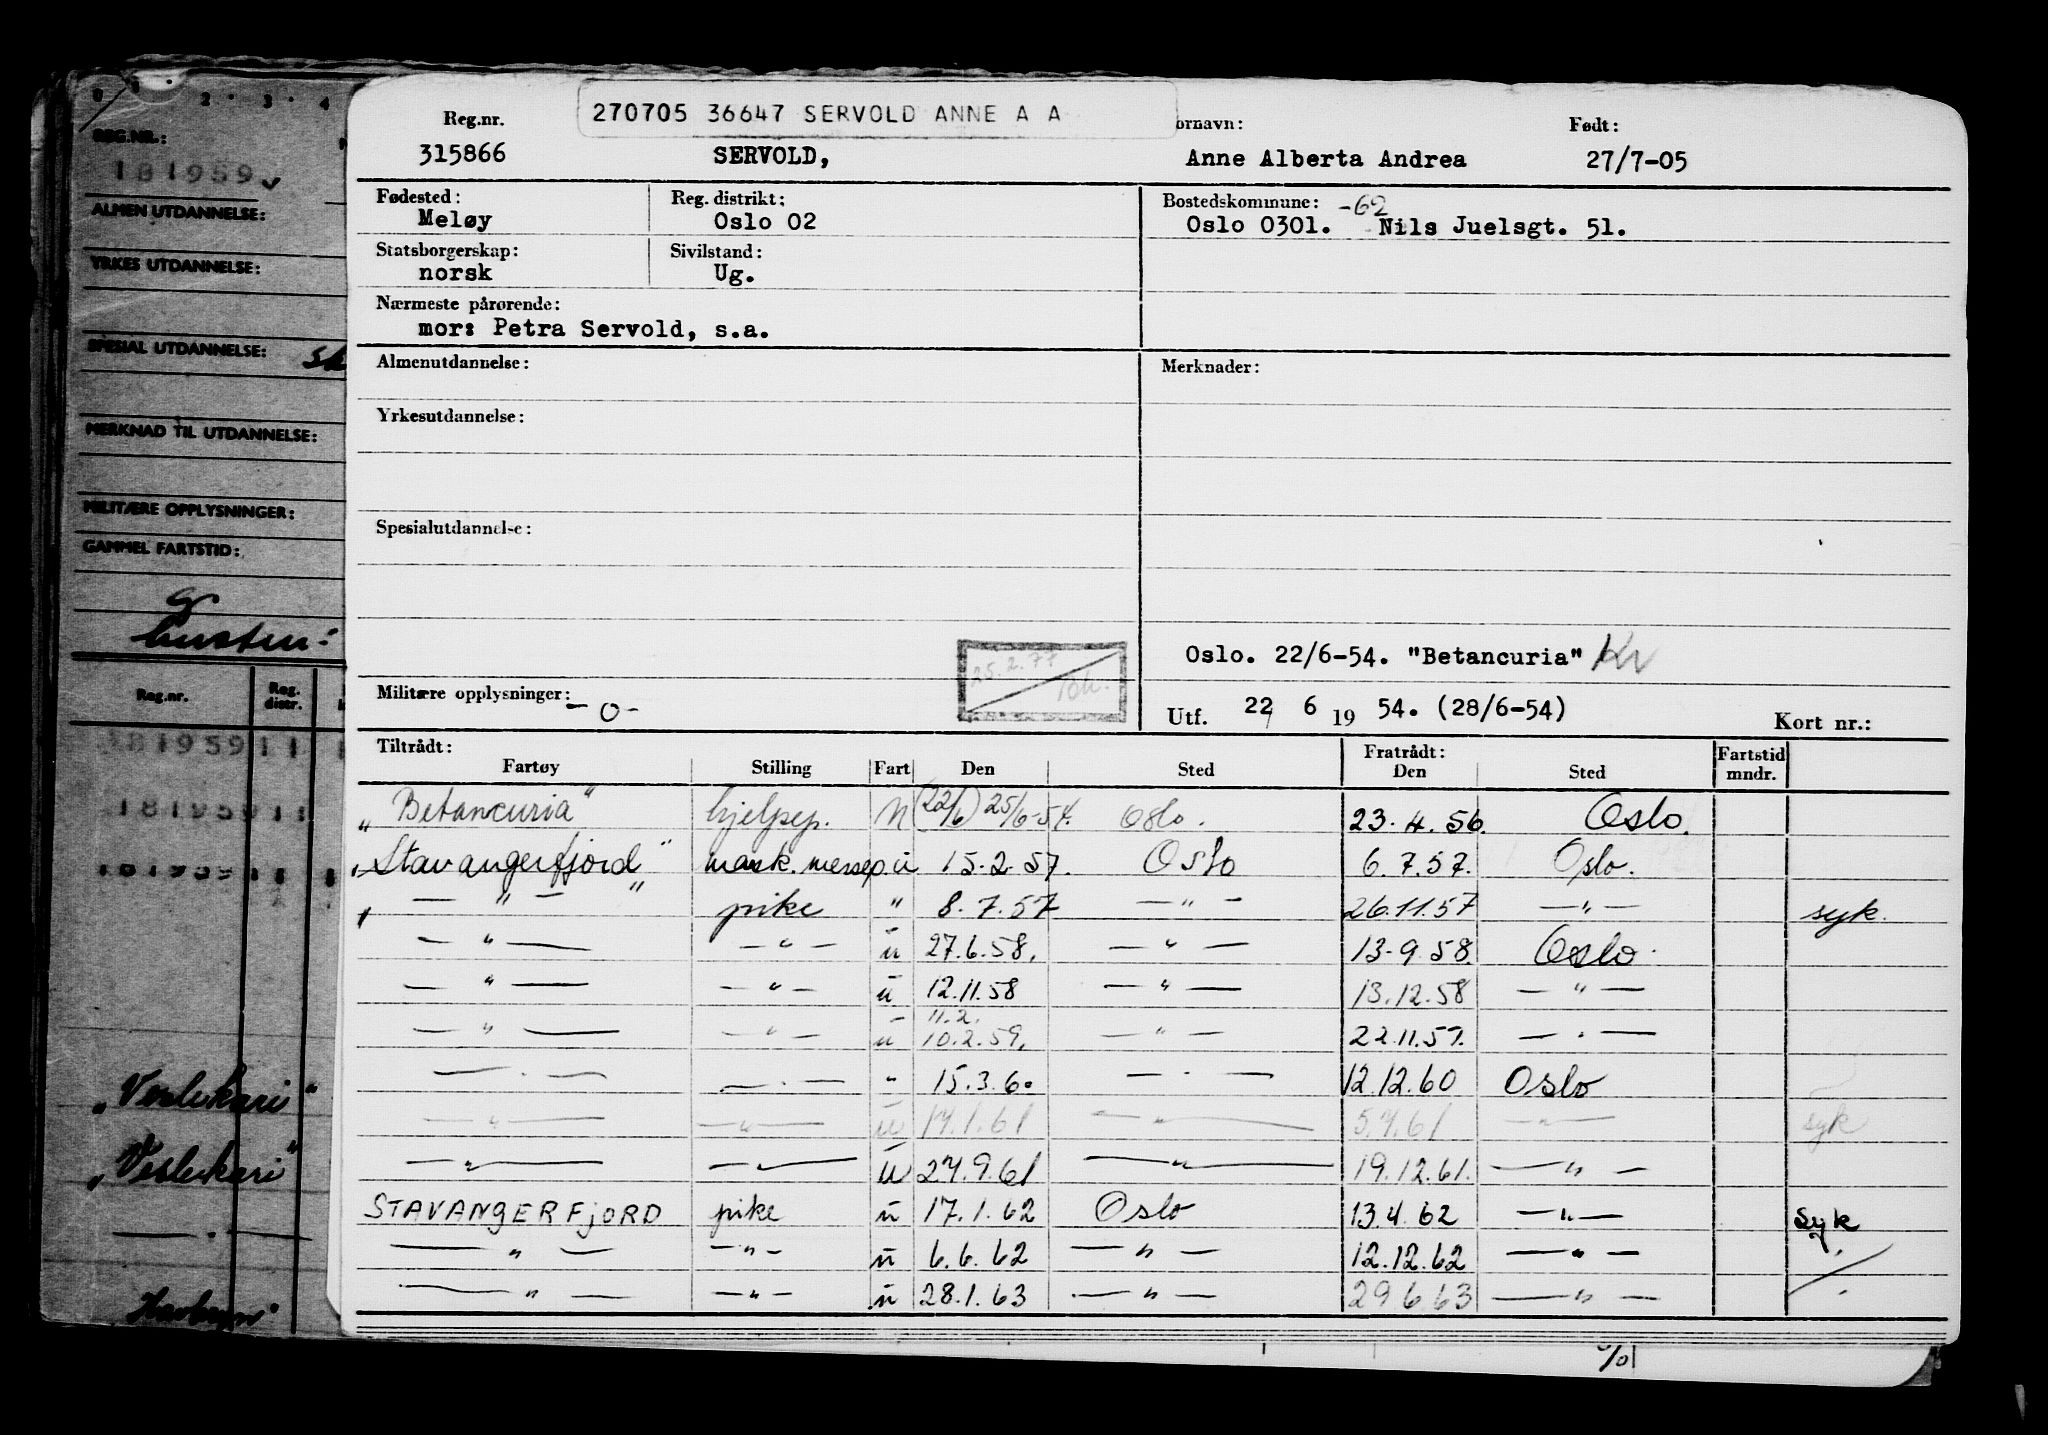 270705 36647 SERVOLD ANNE A A
Reg.nr. ornavn: Født:
315866 SERVOLD, Anne Alberta Andrea 27/7-05
Fødested: Reg. distrikt: Bostedskommune: -62
Meløy Oslo 02 Oslo 0301. Nils Juelsgt. 51.
Statsborgerskap: Sivilstand:
norsk Ug.
Nærmeste pårørende:
mor: Petra Servold, s.a.
Almenutdannelse: Merknader:
Yrkesutdannelse:
Spesialutdannelse:
25.2.77
Oslo. 22/6-54. "Betancuria"
Militære opplysninger: -o-
Utf. 22 6 19 54. (28/6-54) Kort nr.:
Tiltrådt: Fratrådt: Fartstid
Fartøy Stilling Fart Den Sted Den Sted mndr.
"Betancuria" hjelpep. N (22/6) 25/6-54. Oslo. 23.4.56. Oslo.
"Stavangerfjord" mask. messep. ü 15.2.57. Oslo 6.7.57. Oslo.
— " — " pike " 8.7.57 — " — 26.11.57 — " — syk.
— " — — " — ü 27.6.58. — " — 13.9.58. Oslo.
— " — — " — ü 12.11.58 — " — 13.12.58 — " —
11.2.
— " — — " — ü 10.2.59. — " — 22.11.59. — " —
— " — — " — " 15.3.60 — " — 12.12.60 Oslo
— " — — " — ü 17.1.61 — " — 5.7.61 — " — syk
— " — — " — ü 27.9.61 — " — 19.12.61. — " —
STAVANGERFJORD pike ü 17.1.62 Oslo 13.4.62 — " — Syk
— " — — " — ü 6.6.62 — " — 12.12.62 — " —
— " — — " — ü 28.1.63 — " — 29.6.63 — " —
0 1 2 3 4
REG.NR.:
181959
ALMEN UTDANNELSE:
YRKES UTDANNELSE:
SPESIAL UTDANNELSE:
MERKNAD TIL UTDANNELSE:
MILITÆRE OPPLYSNINGER:
GAMMEL FARTSTID:
Reg.nr. Reg. distr.
181959 11
181959 11
181959 11
"Veslekari"
"Veslekari"
— " —